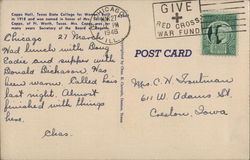 Capps Hall, Texas State College for Women
in 1918 and was named in honor of Mrs.
Capps, of Ft. Worth, Texas. Mrs. Capps
many years Secretary of the Board of
CHICAGO
MAR 27
1946
ILL.
GIVE
RED CROSS
WAR FUND
POST CARD
Chicago 27 March
Had lunch with Doug
Eadie and supper with
Donald Dickason. Has
been warm. Called his
last night. Almost
finished with things
here.
Chas.
Mrs. C. H. Troutman
611 W. Adams St.
Creston, Iowa